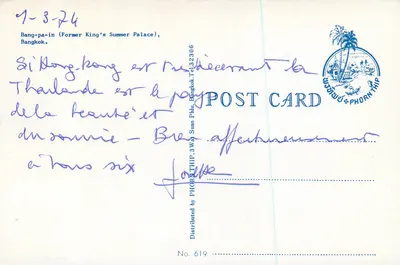 1-3-74
Bang-pa-in (Former King's Summer Palace),
Bangkok.
Si Hong-Kong est très décevant la
Thaïlande est le pays
de la beauté et
du sourire – Bien affectueusement
à vous six
POST CARD
Distributed by PHORN THIP, Bangkok Tel: 32306
พรทิพย์ PHORN THIP
No. 619